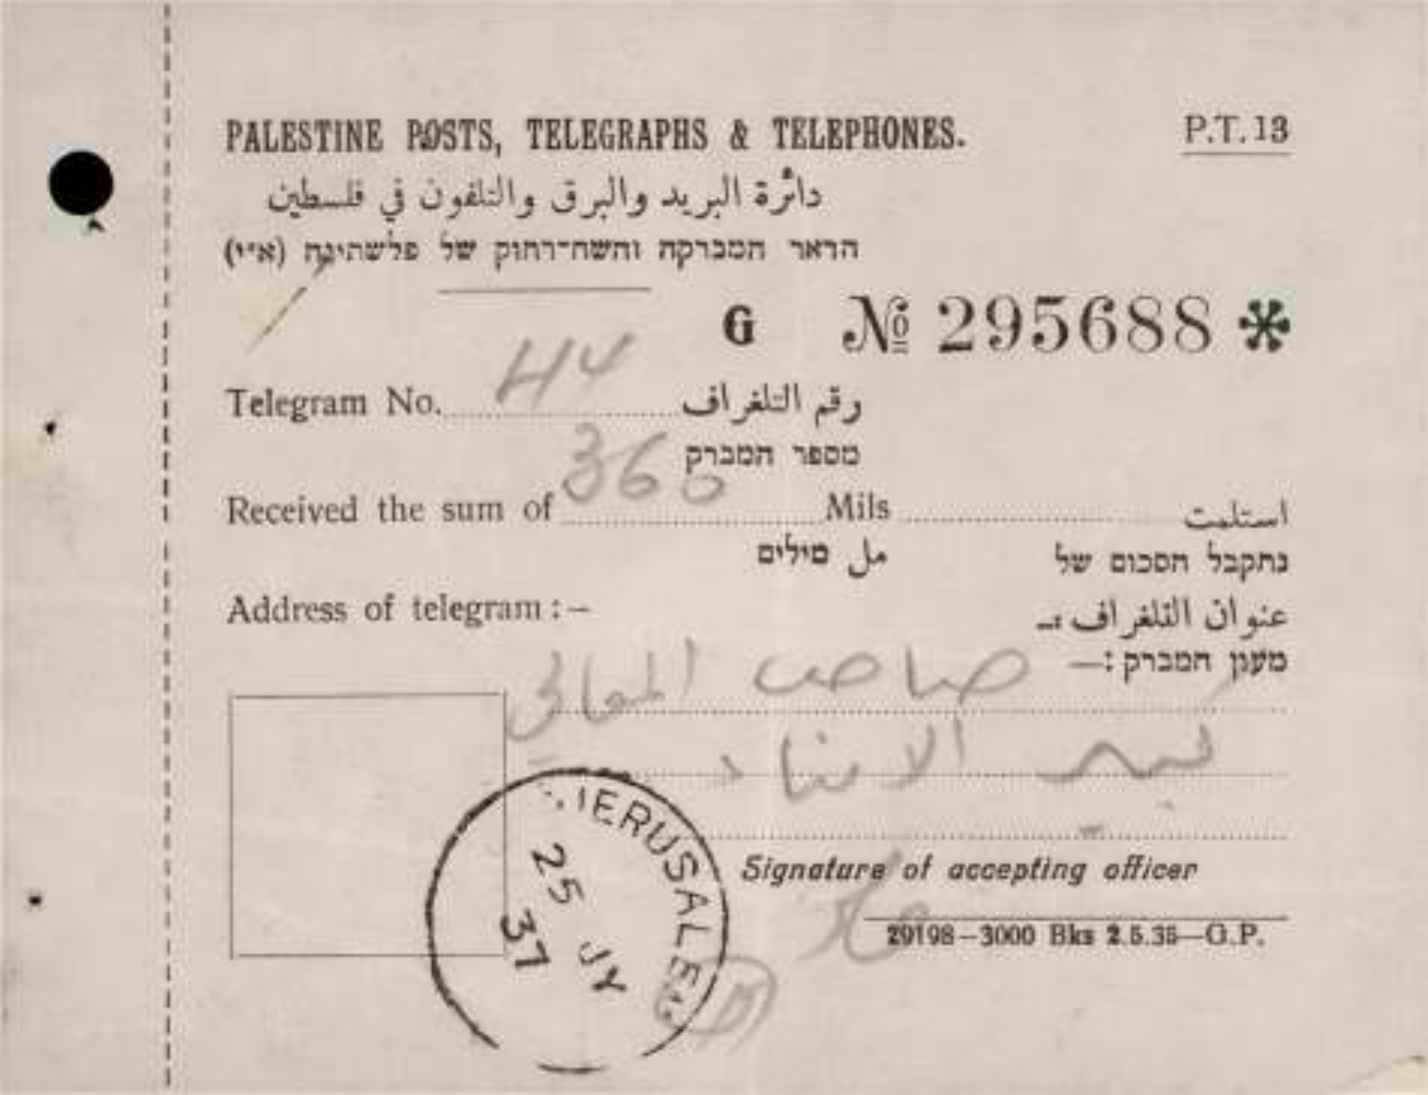 PALESTINE POSTS, TELEGRAPHS & TELEPHONES.
P.T.13
دائرة البريد والبرق والتلفون في فلسطين
הדאר המברקה והשח־רחוק של פלשתינה (א״י)
G № 295688 *
Telegram No. 44 رقم التلغراف
מספר המברק
Received the sum of 360 Mils استلمت
مل מילים נתקבל הסכום של
Address of telegram:– عنوان التلغراف :ـ
מען המברק :—
صاحب المعالي
كبير الامناء
JERUSALEM
25 JY
37
Signature of accepting officer
29198–3000 Bks 2.5.35—G.P.